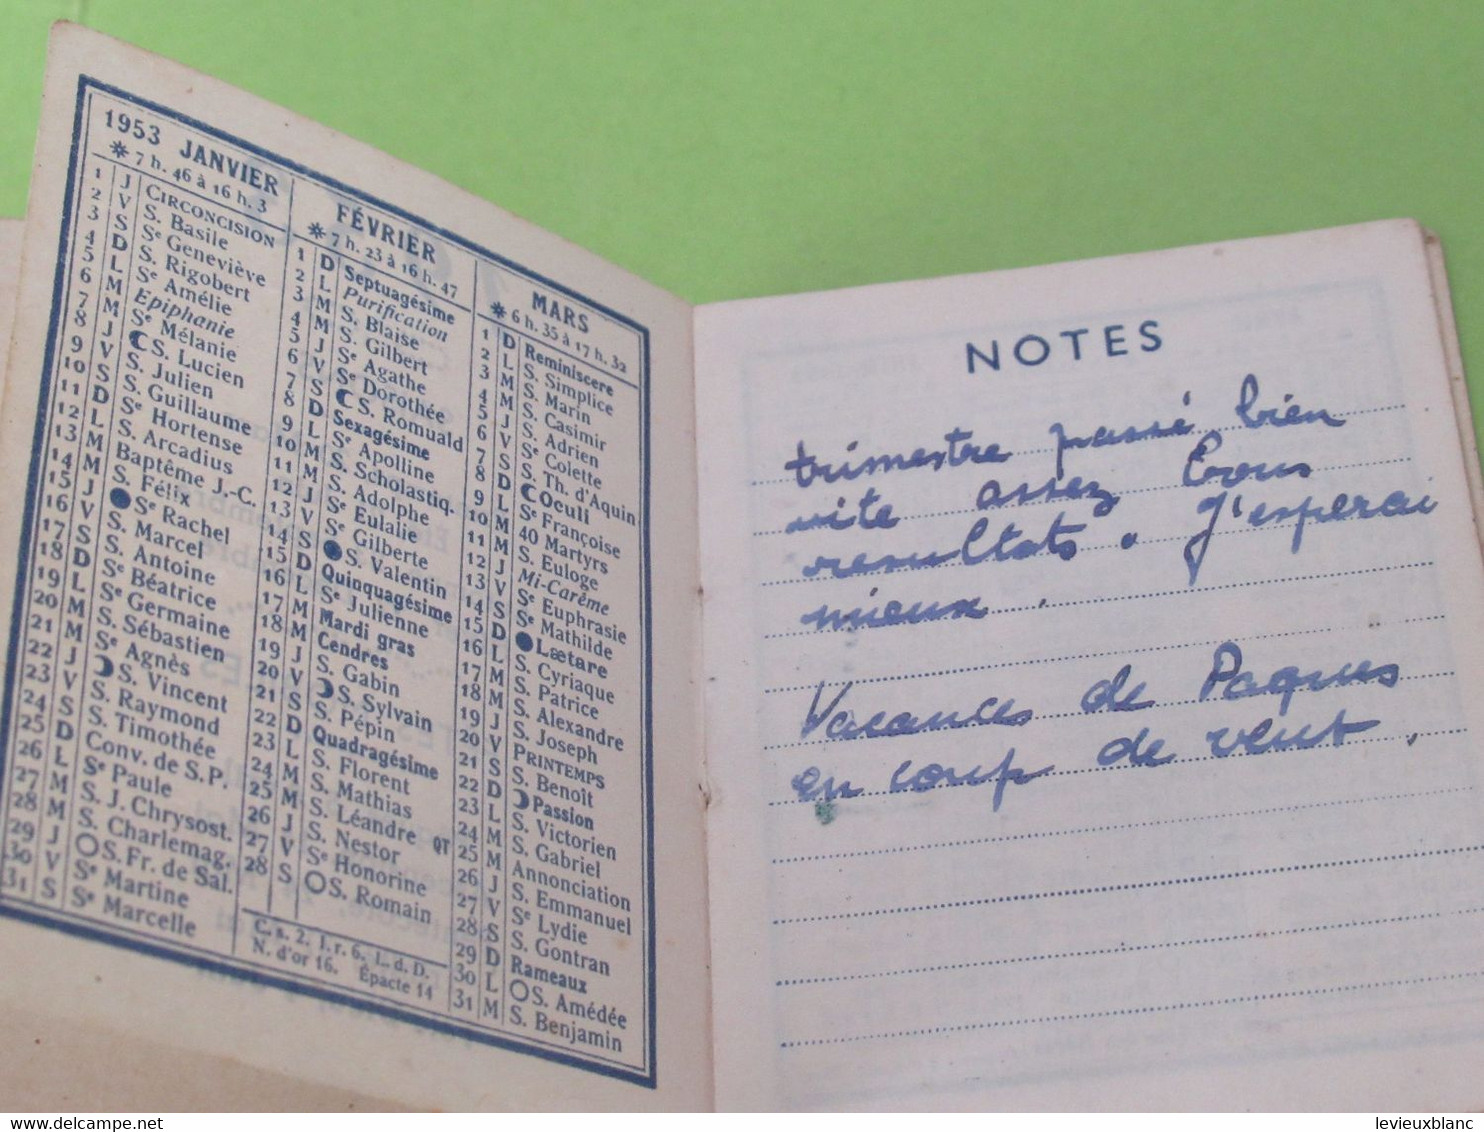 1953 JANVIER
☼ 7 h. 46 à 16 h. 3
1 J CIRCONCISION
2 V S. Basile
3 S Se Geneviève
4 D S. Rigobert
5 L Se Amélie
6 M Epiphanie
7 M Se Mélanie
8 J S. Lucien
9 V S. Julien
10 S S. Guillaume
11 D Se Hortense
12 L S. Arcadius
13 M Baptême J.-C.
14 M S. Félix
15 J Se Rachel
16 V S. Marcel
17 S S. Antoine
18 D Se Béatrice
19 L Se Germaine
20 M S. Sébastien
21 M Se Agnès
22 J S. Vincent
23 V S. Raymond
24 S S. Timothée
25 D Conv. de S.P.
26 L Se Paule
27 M S. J. Chrysost.
28 M S. Charlemag.
29 J S. Fr. de Sal.
30 V Se Martine
31 S Se Marcelle
FÉVRIER
☼ 7 h. 23 à 16 h. 47
1 D Septuagésime
2 L Purification
3 M S. Blaise
4 M S. Gilbert
5 J Se Agathe
6 V Se Dorothée
7 S S. Romuald
8 D Sexagésime
9 L Se Apolline
10 M S. Scholastiq.
11 M S. Adolphe
12 J Se Eulalie
13 V Se Gilberte
14 S S. Valentin
15 D Quinquagésime
16 L Se Julienne
17 M Mardi gras
18 M Cendres
19 J S. Gabin
20 V S. Sylvain
21 S S. Pépin
22 D Quadragésime
23 L S. Florent
24 M S. Mathias
25 M S. Léandre QT
26 J S. Nestor
27 V Se Honorine
28 S S. Romain
C. s. 2, I. r. 6, L. d. D.
N. d'or 16. Épacte 14
MARS
☼ 6 h. 35 à 17 h. 32
1 D Reminiscere
2 L S. Simplice
3 M S. Marin
4 M S. Casimir
5 J S. Adrien
6 V Se Colette
7 S S. Th. d'Aquin
8 D Oculi
9 L Se Françoise
10 M 40 Martyrs
11 M S. Euloge
12 J Mi-Carême
13 V Se Euphrasie
14 S Se Mathilde
15 D Lætare
16 L S. Cyriaque
17 M S. Patrice
18 M S. Alexandre
19 J S. Joseph
20 V PRINTEMPS
21 S S. Benoît
22 D Passion
23 L S. Victorien
24 M S. Gabriel
25 M Annonciation
26 J S. Emmanuel
27 V Se Lydie
28 S S. Gontran
29 D Rameaux
30 L S. Amédée
31 M S. Benjamin
NOTES
trimestre passé bien
vite assez bons
resultats. J'esperai
mieux.
Vacances de Paques
en coup de vent.
delcampe.net
levieuxblanc